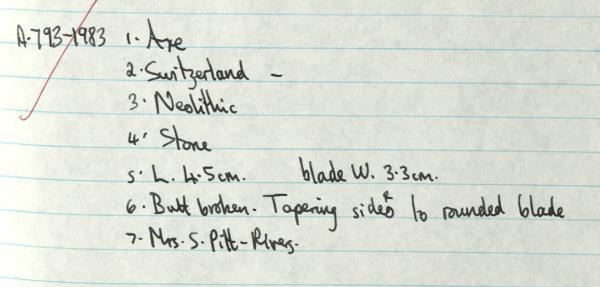 A.793-1983 1. Axe
2. Switzerland -
3. Neolithic
4. Stone
5. L. 4.5cm. blade W. 3.3cm.
6. Butt broken. Tapering sides to rounded blade
7. Mrs. S. Pitt-Rivers.